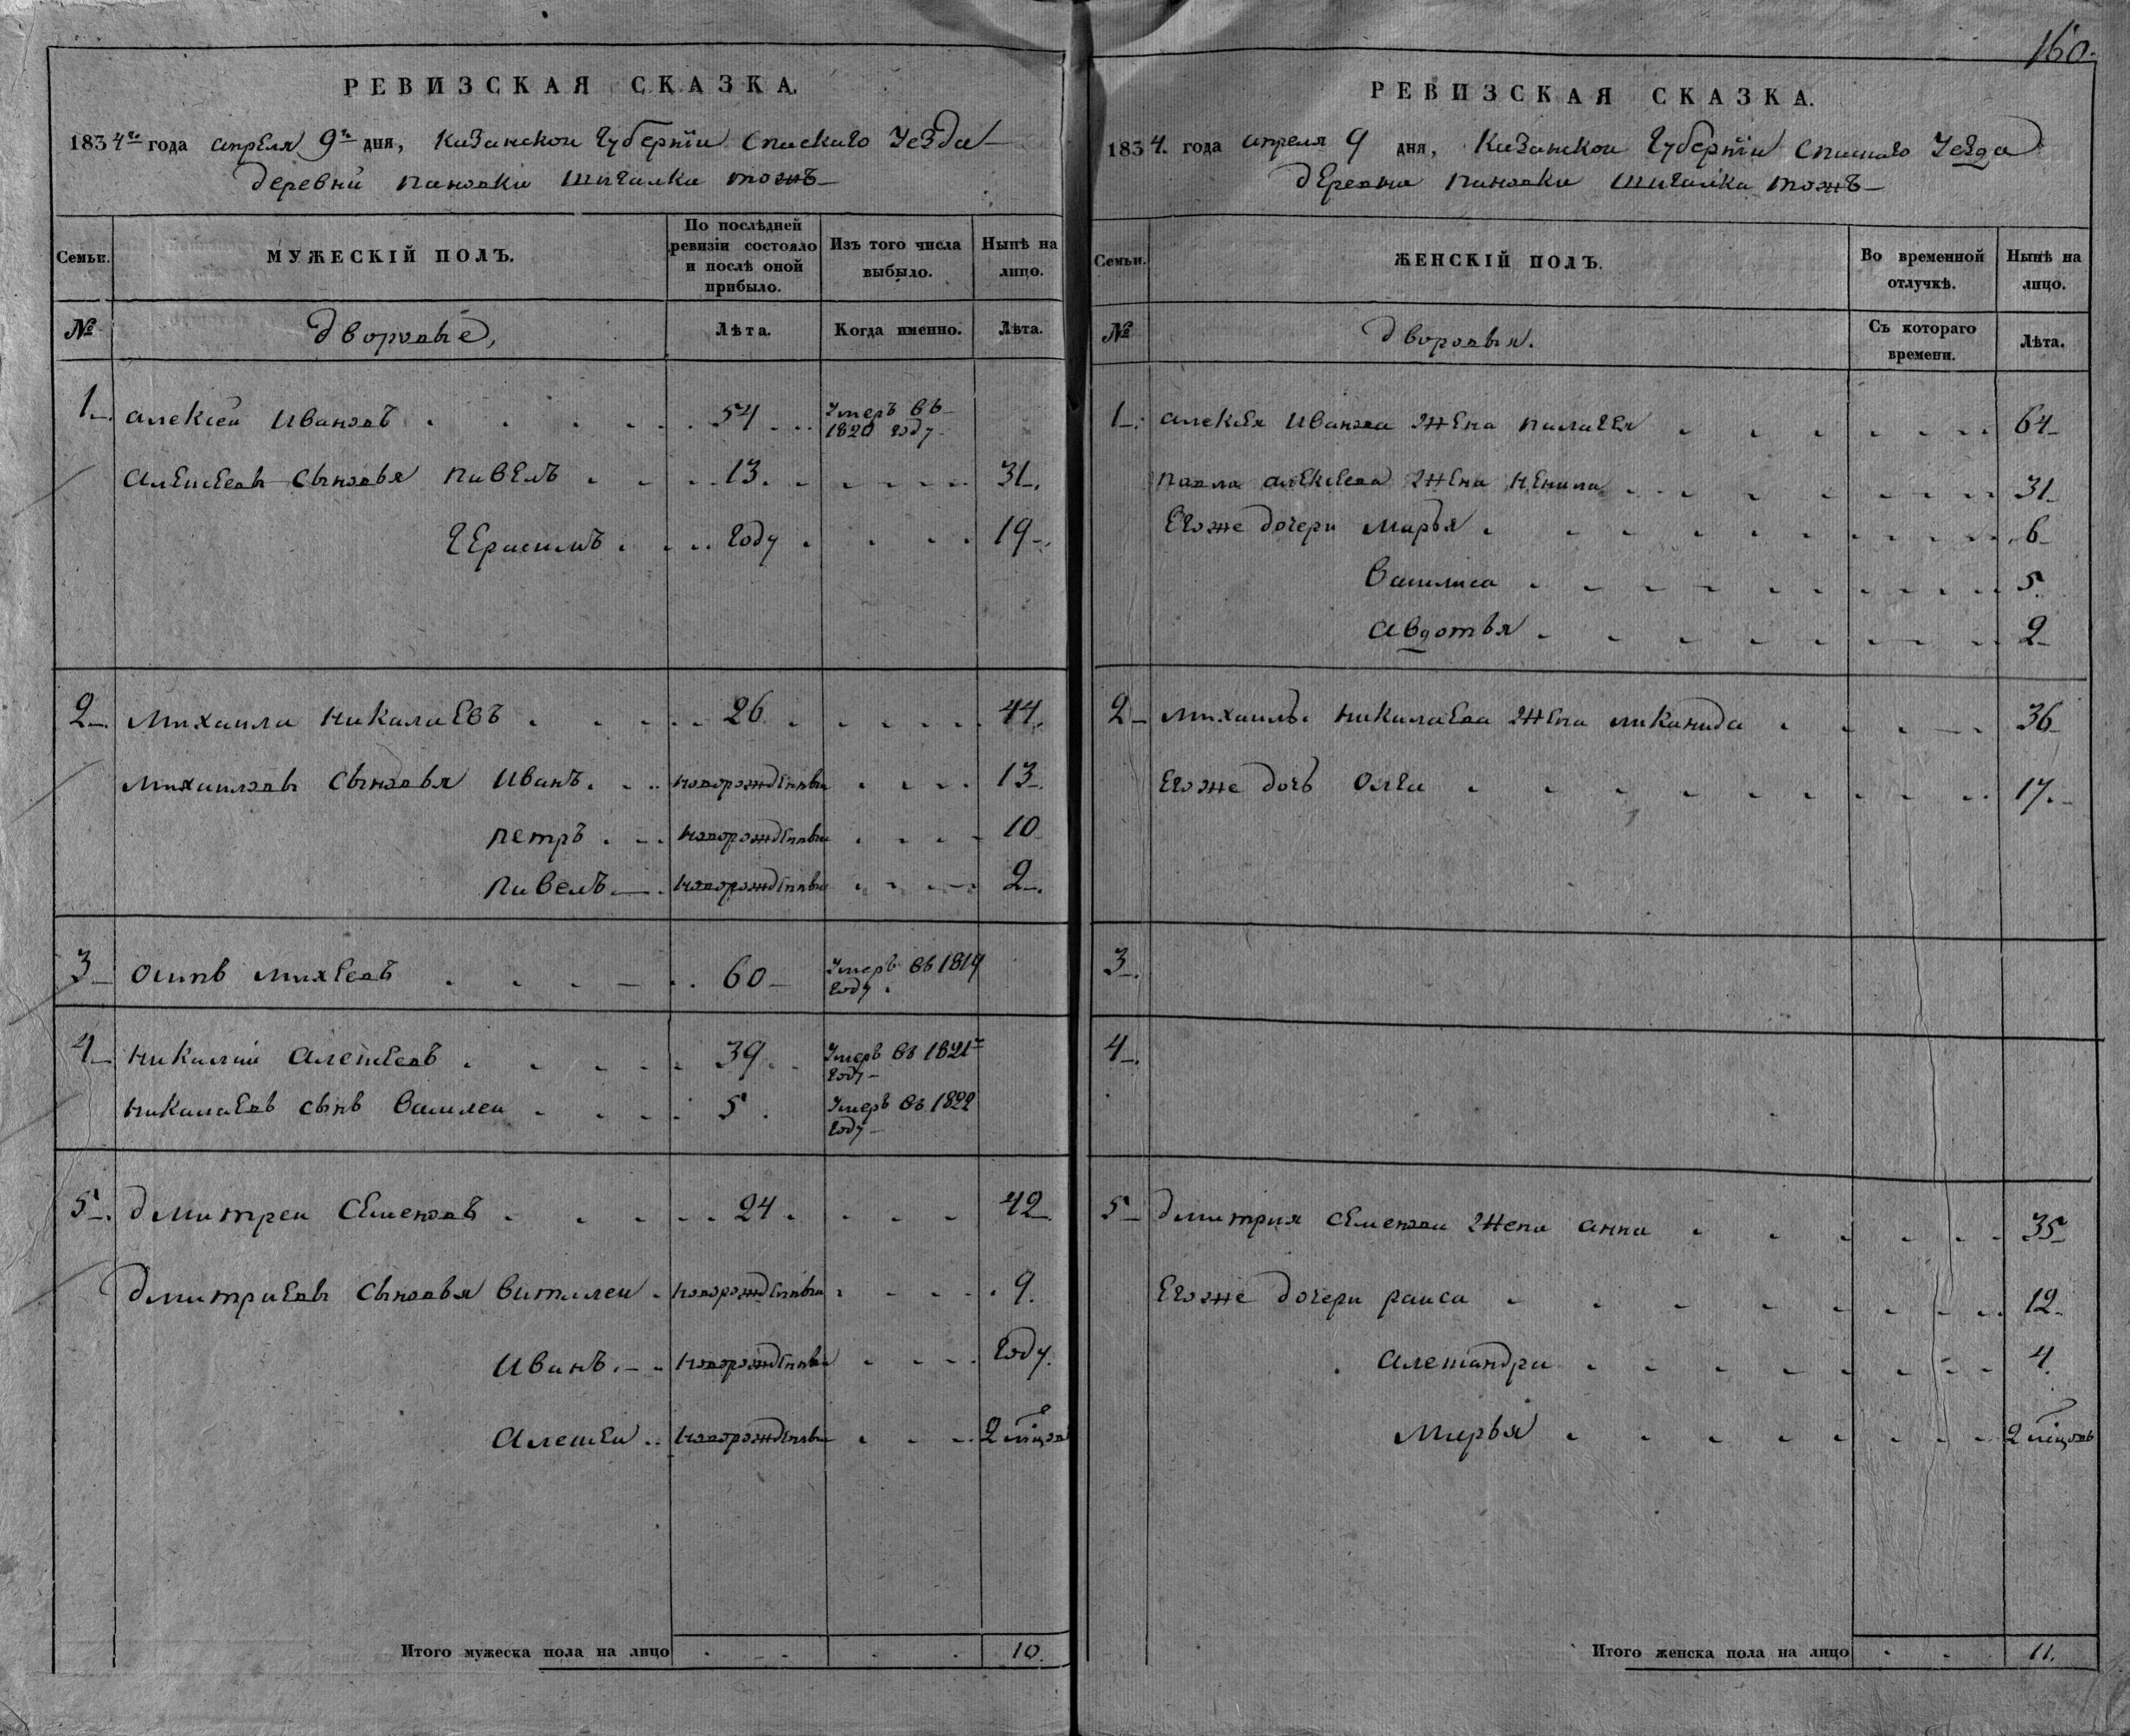 160.
РЕВИЗСКАЯ СКАЗКА.
1834го года апреля 9го дня, Казанской Губернїи Спаскаго Уезда
деревни пановки шигалка тожъ
Семьи.
МУЖЕСКІЙ ПОЛЪ.
По послѣдней ревизіи состояло и послѣ оной прибыло.
Изъ того числа выбыло.
Нынѣ на лицо.
№
дворовые,
Лѣта.
Когда именно.
Лѣта.
1. алексеи Ивановъ 54 Умеръ въ 1820 году
алексеевы сыновья павелъ 13. 31.
герасимъ году 19
2. михаила никалаевъ 26 44.
михаиловы сыновья Иванъ. новорожденный 13.
петръ новорожденный 10
павелъ новорожденный 2.
3 осипъ михеевъ 60 Умеръ въ 1819 году
4 никалаи алексеевъ 39 Умеръ въ 1821м году
никалаевъ сынъ василеи 5 Умеръ въ 1822 году
5. дмитреи семеновъ 24 42
дмитриевы сыновья виталеи новорожденный 9.
Иванъ новорожденный году.
алексеи новорожденный 2 мїцов
Итого мужеска пола на лицо 10.
РЕВИЗСКАЯ СКАЗКА.
1834. года апреля 9 дня, Казанской Губернїи Спаскаго Уезда
деревни пановки шигалка тожъ
Семьи.
ЖЕНСКІЙ ПОЛЪ.
Во временной отлучкѣ.
Нынѣ на лицо.
№
дворовыя.
Съ котораго времени.
Лѣта.
1. алексея Иванова жена палагея 64
павла алексеева жена ненила 31
Егоже дочери марья 6
василиса 5.
авдотья 2
2 михаилы никалаева жена миканида 36
Егоже дочь олга 17.
3.
4.
5 дмитрия семенова жена анна 35
Егоже дочери раиса 12.
александра 4.
Марья 2 мїцовъ
Итого женска пола на лицо 11.